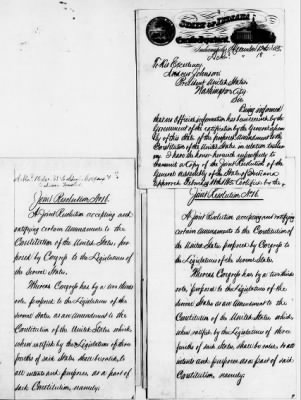 STATE OF INDIANA
To His Excellency
Andrew Johnson
President United States
Washington City
Sir
Being informed
that no official information has been received by the
Government of the ratification by the General Assem
bly of this State of the proposed Amendment to the
Constitution of the United States, in relation to slav
ery. I have the honor herewith respectfully to
transmit a Copy of the Joint Resolution of the
General Assembly of the State of Indiana
Approved February 1865. Certified by the
Joint Resolution No 16.
A Joint Resolution accepting and ratifying
certain amendments to the Constitution of
the United States, proposed by Congress to
the Legislatures of the several States.
Whereas Congress has by a two thirds
vote, proposed to the Legislatures of the
several States as an Amendment to the
Constitution of the United States, which
when ratified by the Legislatures of three
fourths of said States, shall be valid, to all
intents and purposes as a part of said
Constitution, namely;
Joint Resolution No 16.
A Joint Resolution accepting and
ratifying certain amendments to the
Constitution of the United States, pro
posed by Congress to the Legislatures of
the several States.
Whereas Congress has by a two thirds
vote, proposed to the Legislatures of the
several States as an Amendment to the
Constitution of the United States which,
when ratified by the Legislatures of three
fourths of said States shall be valid, to
all intents and purposes, as a part of
said Constitution, namely;